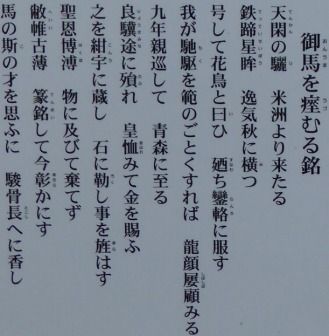 御馬を瘞むる銘
天閑の驪　米洲より来たる
鉄蹄星眸　逸気秋に横つ
号して花鳥と曰ひ　廼ち鑾輅に服す
我が馳駆を範のごとくすれば　龍顔屡顧みる
九年親巡して　青森に至る
良驥途に殪れ　皇恤みて金を賜ふ
之を紺宇に蔵し　石に勒し事を旌はす
聖恩博溥　物に及びて棄てず
敝帷古薄　篆銘して今彰かにす
馬の斯の才を思ふに　駿骨長へに香し